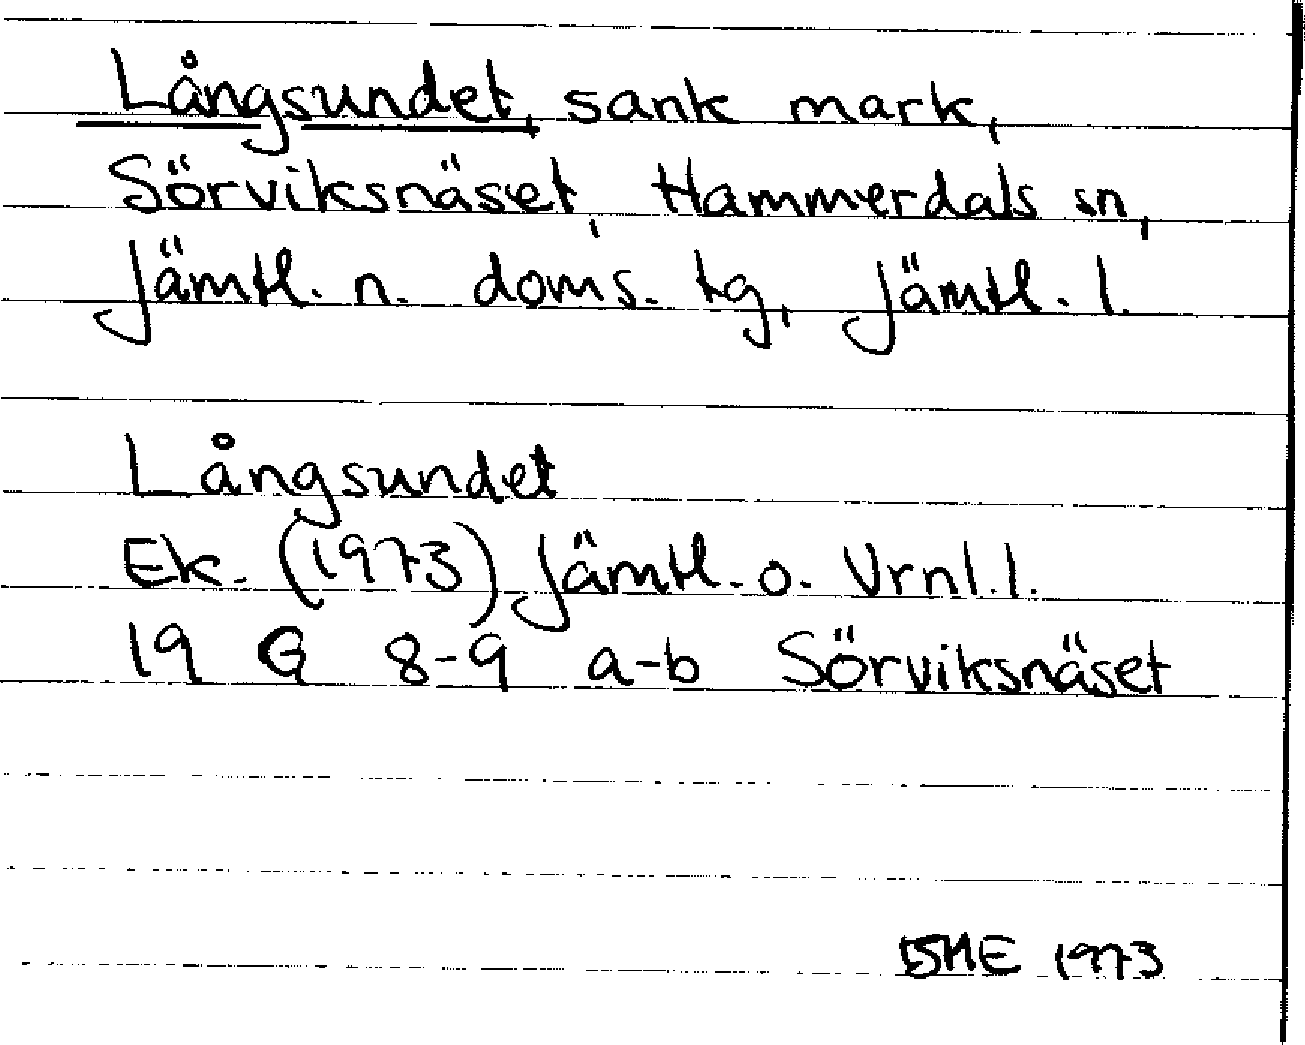 Långsundet, sank mark,
Sörviksnäset, Hammerdals sn,
Jämtl. n. doms. tg, Jämtl. l.
Långsundet
Ek. (1973) Jämtl. o. Vrnl. l.
19 G 8-9 a-b Sörviksnäset
1973